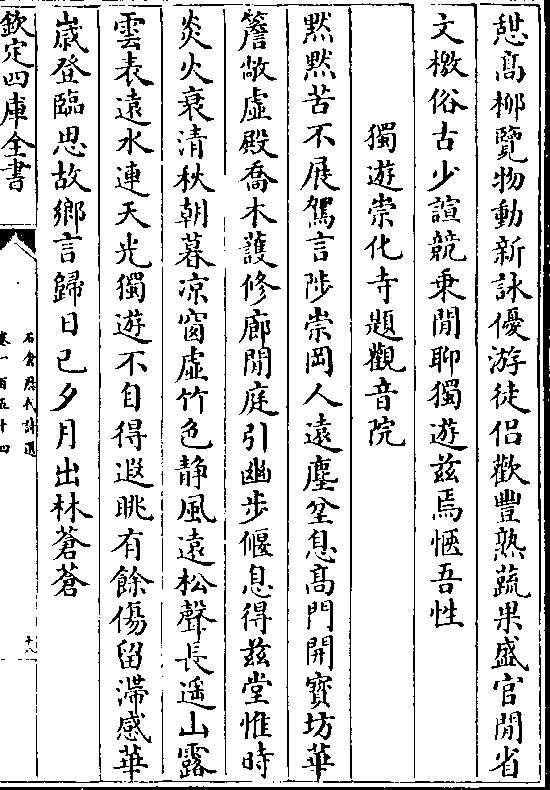 憇高柳覽物動新詠優游徒侣歡豐熟蔬果盛官閒省
文檄俗古少諠競乗閒聊獨遊兹焉愜吾性
獨遊崇化寺題觀音院
黙黙苦不展駕言陟崇岡人遠塵坌息髙門開寶坊華
簷敞虚殿喬木䕶修廊閒庭引幽步偃息得兹堂惟時
炎火衰清秋朝暮凉窗虚竹色静風逺松聲長遥山露
雲表遠水連天光獨遊不自得遐眺有餘傷留滯感華
歳登臨思故鄉言歸日已夕月出林蒼蒼
欽定四庫全書
石倉歴代詩選
卷一百五十四
十八